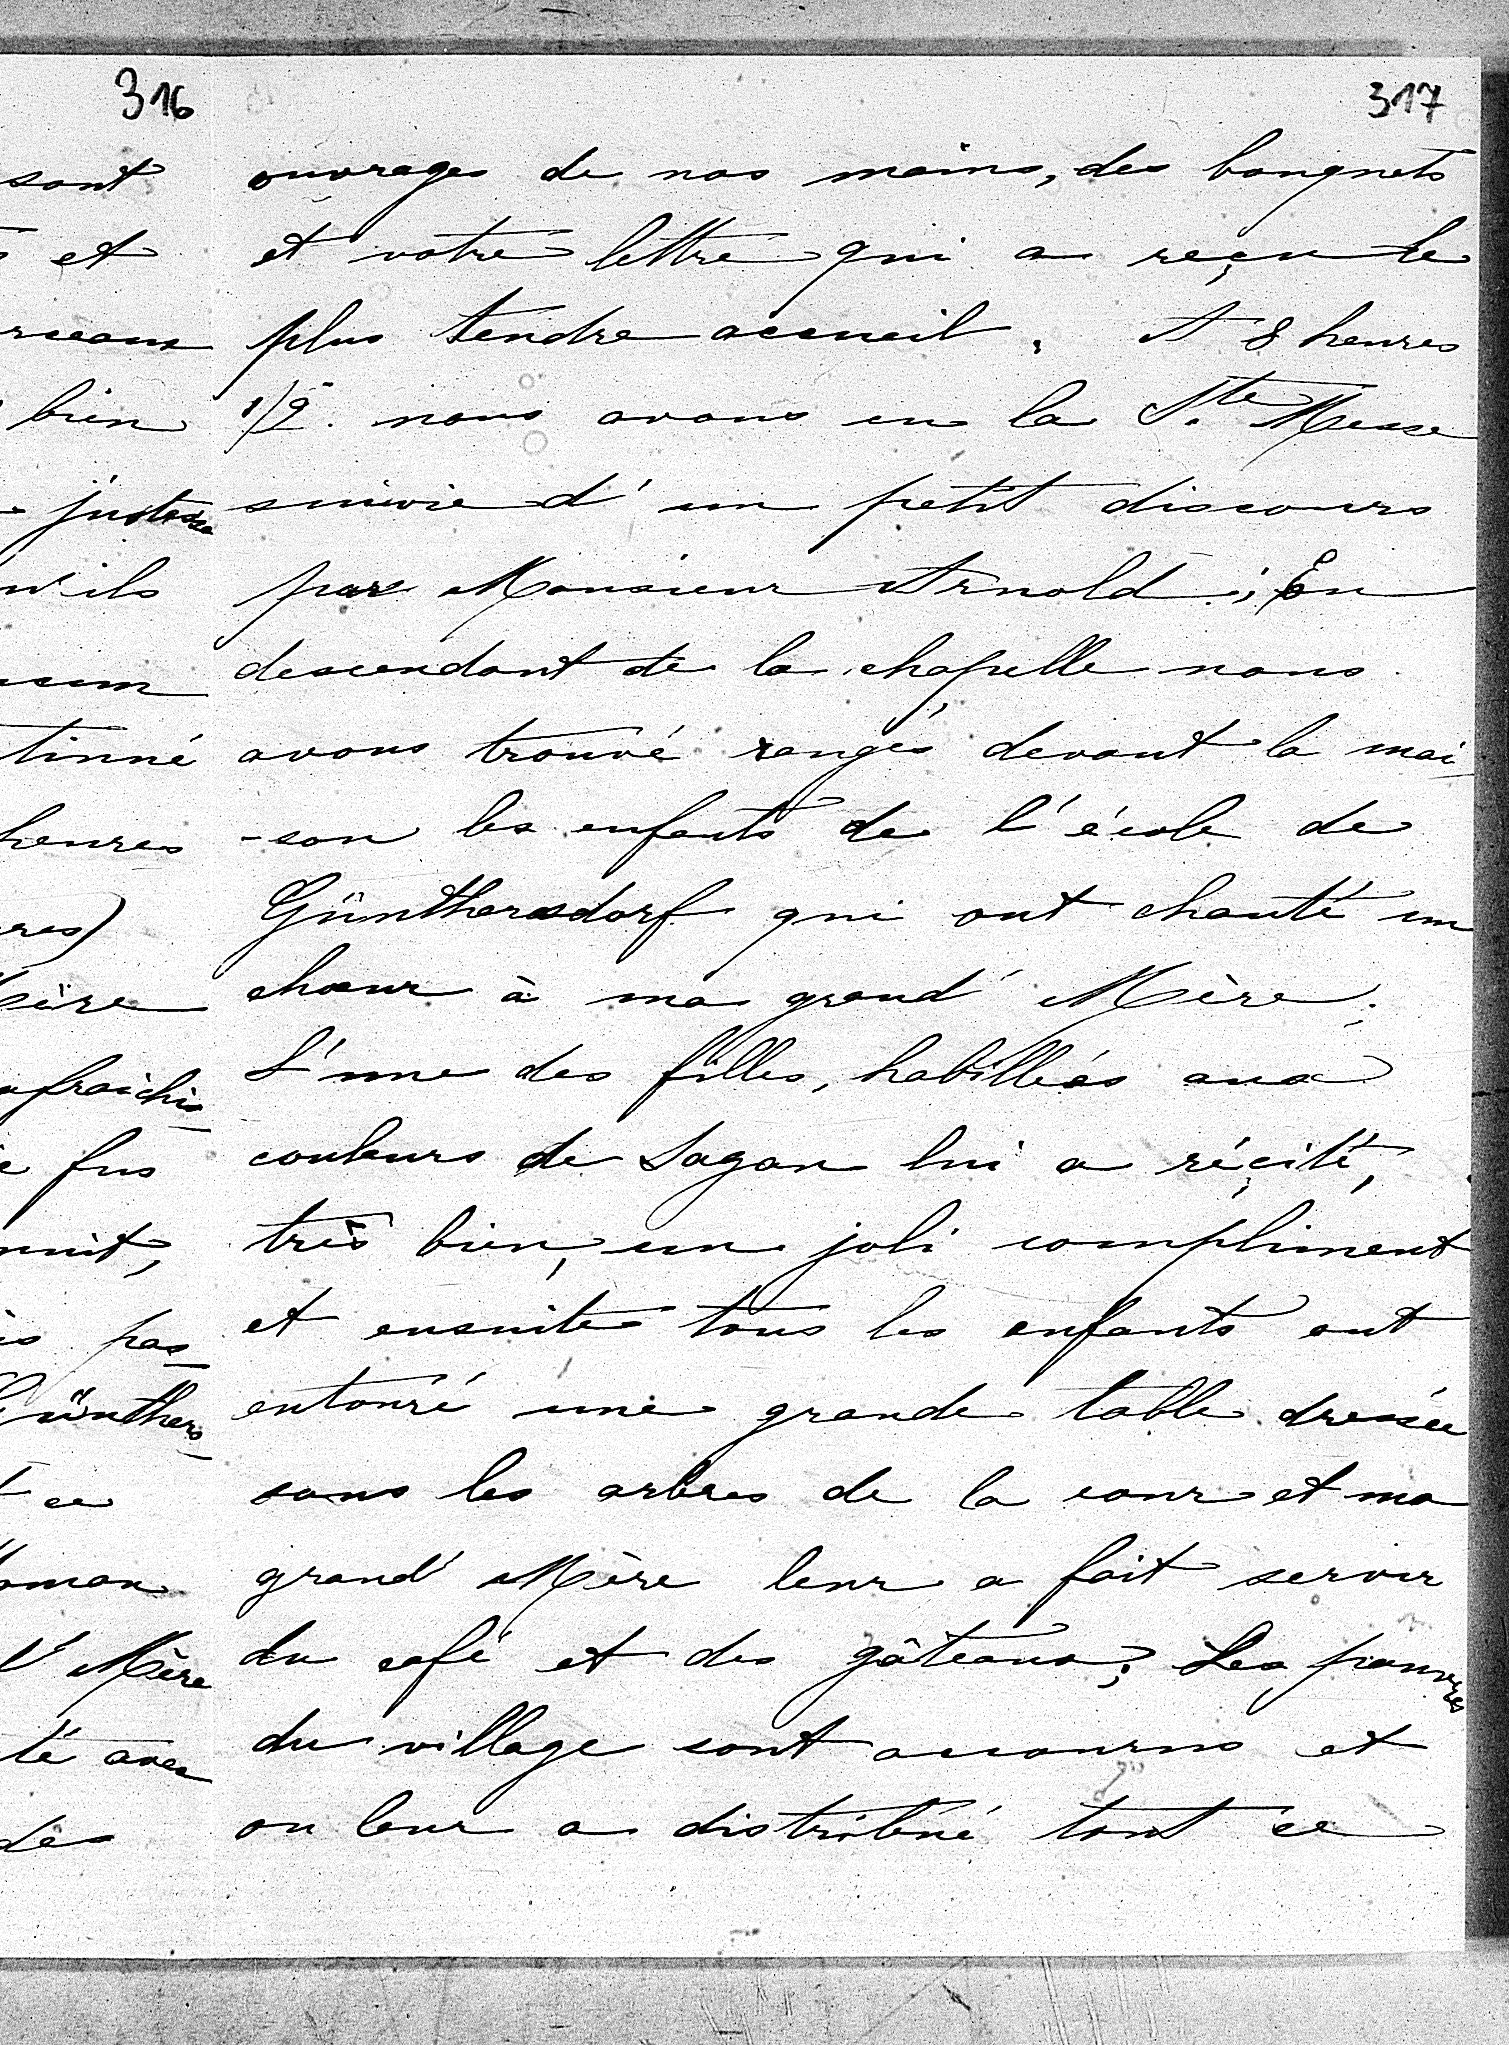 316
sont
et
rceaux
bien
justesse
n'ils
ucun
tinné
heures
res)
Mère
afraichis_
e fus
nuit,
is pas_
Günthers_
ce
oman
d' Mère
té avec
des
317
ouvrages de nos mains, des bouquets
et votre lettre qui a reçu le
plus tendre accueil. A 8 heures
1/2. nous avons eu la Ste Messe
suivie d'un petit discours
par Monsieur Arnold; En
descendant de la chapelle nous
avons trouvé rangés devant la mai_
-son les enfants de l'école de
Günthersdorf qui ont chanté un
choeur à ma grand' Mère.
L'une des filles, habillées aux
couleurs de Sagan lui a récité,
très bien, un joli compliment
et ensuite tous les enfants ont
entouré une grande table dressée
sous les arbres de la cour et ma
grand' Mère leur a fait servir
du café et des gâteaux; Les pauvres
du village sont accourus et
on leur a distribué tout ce